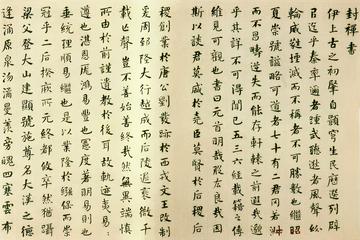 封禪書
伊上古之初肇自顥穹生民歷選列辟
㠯迄乎秦率邇者踵武聽逖者風聲紛
輪威蕤堙滅而不稱者不可勝數也繼昭
夏崇號諡略可道者七十有二君罔若淑
而不昌疇逆失而能存軒轅之前遐哉邈
乎其詳不可得聞已五三六經載籍之傳
維見可觀也書曰元首明哉股肱良哉因
斯以談君莫盛於堯臣莫賢於后稷后
稷創業於唐公劉發跡於西戎文王改制
爰周郅隆大行越成而后陵遲衰微千
載亡聲豈不善始善終哉然無異端慎
所由於前謹遺教於後耳故軌跡夷易易
遵也湛恩厖鴻易豐也憲度著明易則也
垂統理順易繼也是以業隆於繦保而崇
冠乎二后揆厥所元終都攸卒然猶躡
梁父登大山建顯號施尊名大漢之德
逢涌原泉沕潏曼羨旁魄四塞雲布